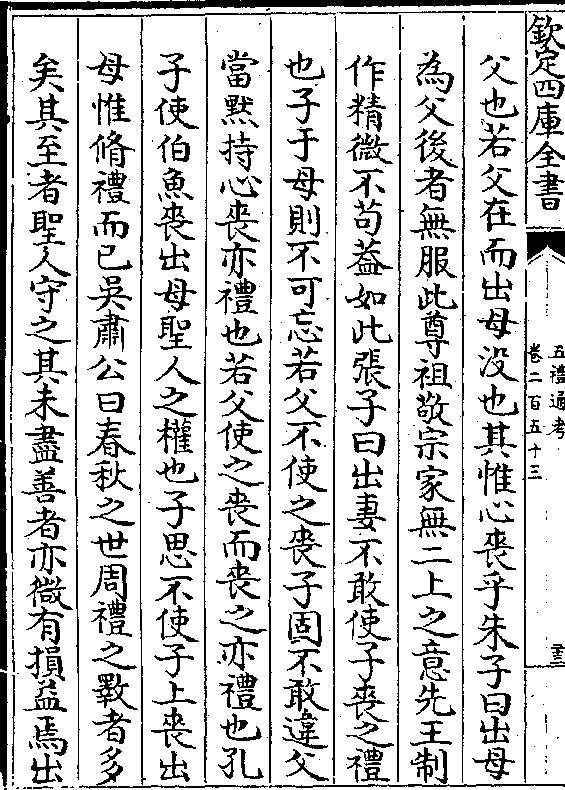 欽定四庫全書
五禮通考
卷二百五十三
父也若父在而出母没也其惟心喪乎朱子曰出母
為父後者無服此尊祖敬宗家無二上之意先王制
作精微不苟葢如此張子曰出妻不敢使子喪之禮
也子于母則不可忘若父不使之喪子固不敢違父
當黙持心喪亦禮也若父使之喪而喪之亦禮也孔
子使伯魚喪出母聖人之權也子思不使子上喪出
母惟脩禮而已吳肅公曰春秋之世周禮之斁者多
矣其至者聖人守之其未盡善者亦微有損益焉出